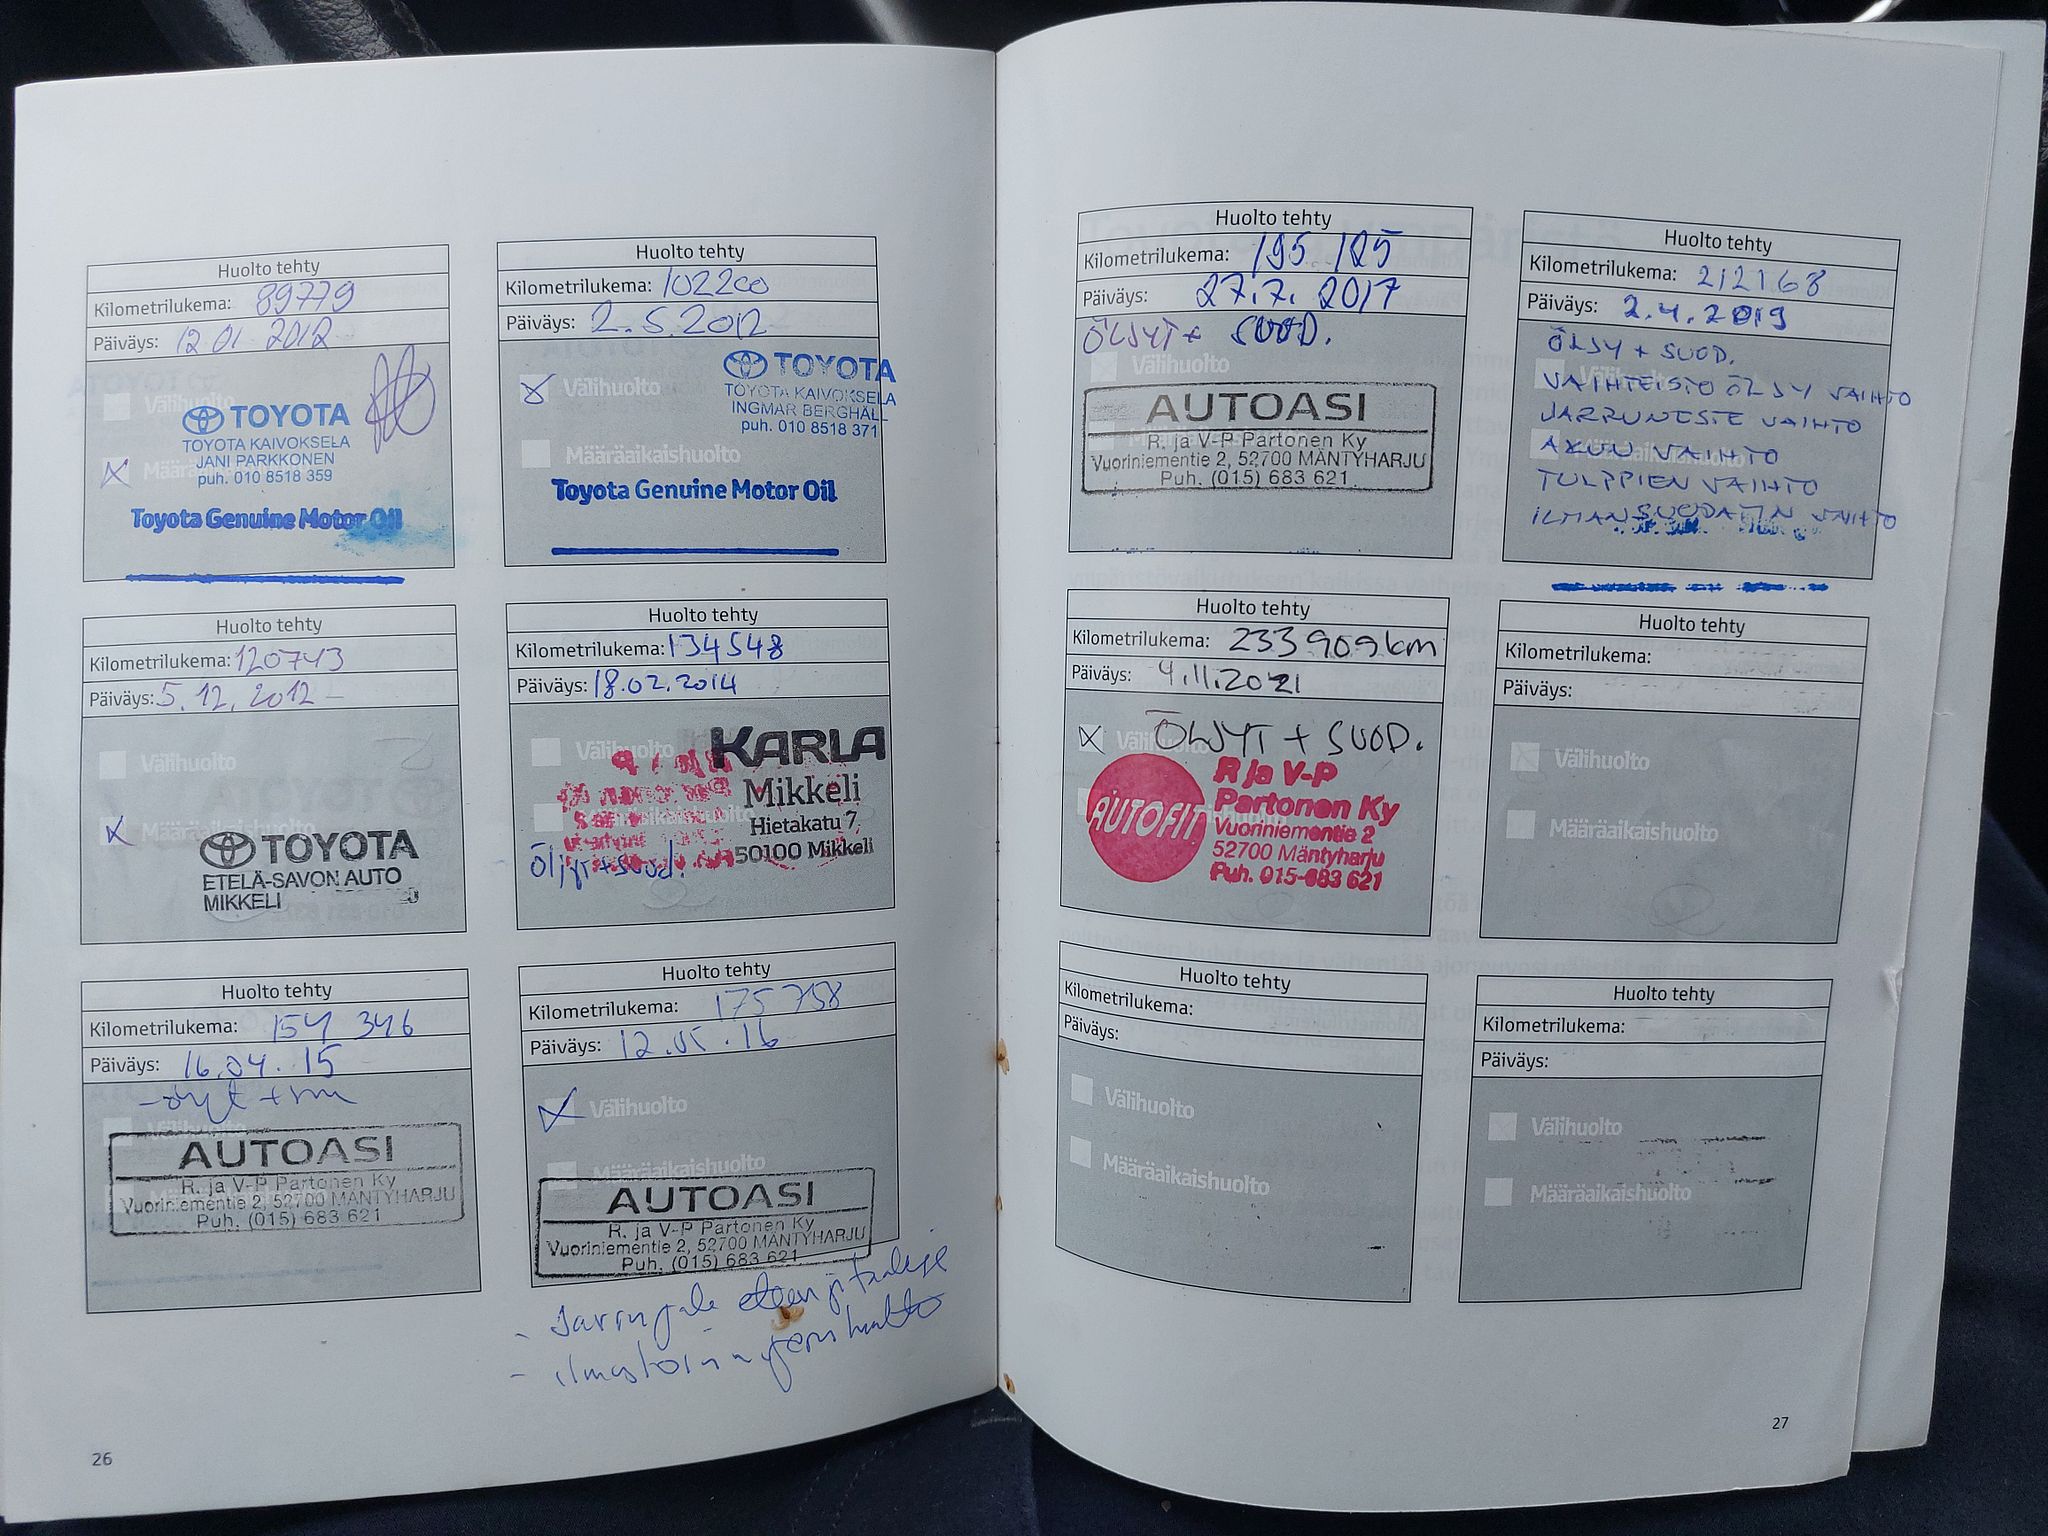 Huolto tehty
Kilometrilukema: 89779
Päiväys: 12 01 2012
Välihuolto
TOYOTA
TOYOTA KAIVOKSELA
JANI PARKKONEN
puh. 010 8518 359
Toyota Genuine Motor Oil
Huolto tehty
Kilometrilukema: 102200
Päiväys: 2.5.2012
Välihuolto
TOYOTA
TOYOTA KAIVOKSELA
INGMAR BERGHÄLL
puh. 010 8518 371
Määräaikaishuolto
Toyota Genuine Motor Oil
Huolto tehty
Kilometrilukema: 120743
Päiväys: 5.12.2012
Välihuolto
Määräaikaishuolto
TOYOTA
ETELÄ-SAVON AUTO
MIKKELI
Huolto tehty
Kilometrilukema: 134548
Päiväys: 18.02.2014
Välihuolto
KARLA
Mikkeli
Hietakatu 7
50100 Mikkeli
Öljyt + suod.
Huolto tehty
Kilometrilukema: 154 346
Päiväys: 16.04.15
Välihuolto
AUTOASI
R. ja V-P Partonen Ky
Vuoriniementie 2, 52700 MÄNTYHARJU
Puh. (015) 683 621
Huolto tehty
Kilometrilukema: 175 758
Päiväys: 12.05.16
Välihuolto
Määräaikaishuolto
AUTOASI
R. ja V-P Partonen Ky
Vuoriniementie 2, 52700 MÄNTYHARJU
Puh. (015) 683 621
26
Huolto tehty
Kilometrilukema: 195 125
Päiväys: 27.7. 2017
ÖLJYT + SUOD.
Välihuolto
AUTOASI
R. ja V-P Partonen Ky
Vuoriniementie 2, 52700 MÄNTYHARJU
Puh. (015) 683 621
Huolto tehty
Kilometrilukema: 212168
Päiväys: 2.4.2019
ÖLJY + SUOD.
VAIHTEISTO ÖLJY VAIHTO
JARRUNESTE VAIHTO
AKUU VAIHTO
TULPPIEN VAIHTO
ILMANSUODATIN VAIHTO
Huolto tehty
Kilometrilukema: 233 909km
Päiväys: 4.11.2021
Välihuolto
ÖLJYT + SUOD.
AUTOFIT
R ja V-P
Partonen Ky
Vuoriniementie 2
52700 Mäntyharju
Puh. 015-683 621
Huolto tehty
Kilometrilukema:
Päiväys:
Välihuolto
Määräaikaishuolto
Huolto tehty
Kilometrilukema:
Päiväys:
Välihuolto
Määräaikaishuolto
Huolto tehty
Kilometrilukema:
Päiväys:
Välihuolto
Määräaikaishuolto
27